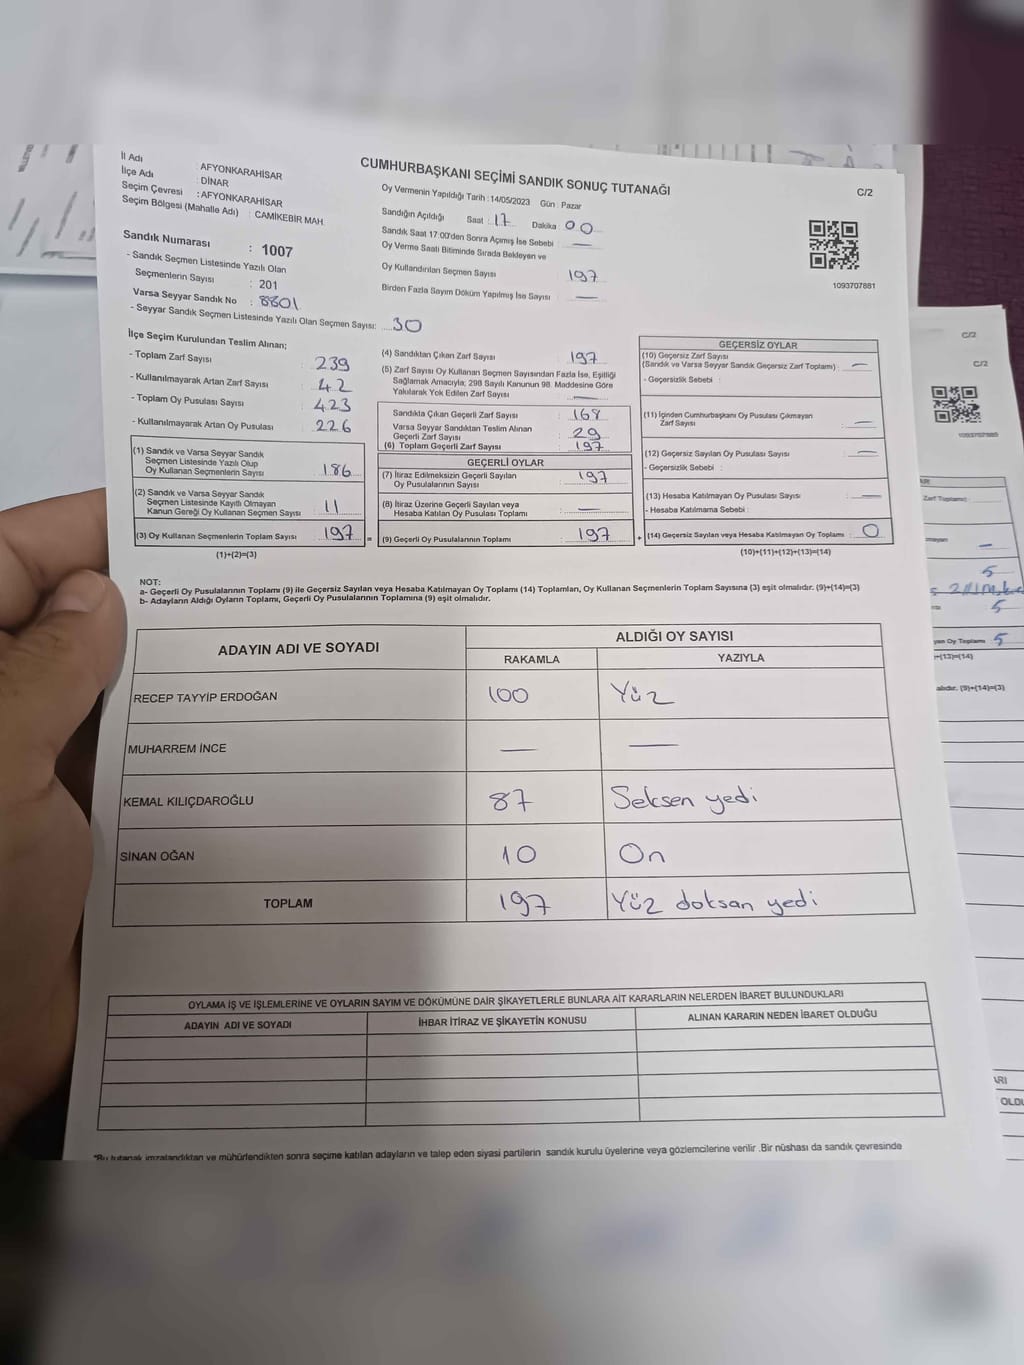 CUMHURBAŞKANI SEÇİMİ SANDIK SONUÇ TUTANAĞI
C/2
İl Adı : AFYONKARAHİSAR
İlçe Adı : DİNAR
Seçim Çevresi : AFYONKARAHİSAR
Seçim Bölgesi (Mahalle Adı) : CAMİKEBİR MAH.
Sandık Numarası : 1007
- Sandık Seçmen Listesinde Yazılı Olan
Seçmenlerin Sayısı : 201
Varsa Seyyar Sandık No : 8801
- Seyyar Sandık Seçmen Listesinde Yazılı Olan Seçmen Sayısı: 30
Oy Vermenin Yapıldığı Tarih : 14/05/2023 Gün : Pazar
Sandığın Açıldığı Saat : 17 Dakika : 00
Sandık Saat 17:00'den Sonra Açımış İse Sebebi : —
Oy Verme Saati Bitiminde Sırada Bekleyen ve
Oy Kullandırılan Seçmen Sayısı 197
Birden Fazla Sayım Döküm Yapılmış İse Sayısı : —
1093707881
İlçe Seçim Kurulundan Teslim Alınan;
- Toplam Zarf Sayısı : 239
- Kullanılmayarak Artan Zarf Sayısı : 42
- Toplam Oy Pusulası Sayısı : 423
- Kullanılmayarak Artan Oy Pusulası : 226
(1) Sandık ve Varsa Seyyar Sandık
Seçmen Listesinde Yazılı Olup
Oy Kullanan Seçmenlerin Sayısı : 186
(2) Sandık ve Varsa Seyyar Sandık
Seçmen Listesinde Kayıtlı Olmayan
Kanun Gereği Oy Kullanan Seçmen Sayısı : 11
(3) Oy Kullanan Seçmenlerin Toplam Sayısı : 197 =
(1)+(2)=(3)
(4) Sandıktan Çıkan Zarf Sayısı : 197
(5) Zarf Sayısı Oy Kullanan Seçmen Sayısından Fazla İse, Eşitliği
Sağlamak Amacıyla; 298 Sayılı Kanunun 98. Maddesine Göre
Yakılarak Yok Edilen Zarf Sayısı : —
Sandıkta Çıkan Geçerli Zarf Sayısı : 168
Varsa Seyyar Sandıktan Teslim Alınan
Geçerli Zarf Sayısı : 29
(6) Toplam Geçerli Zarf Sayısı : 197
GEÇERLİ OYLAR
(7) İtiraz Edilmeksizin Geçerli Sayılan
Oy Pusulalarının Sayısı : 197
(8) İtiraz Üzerine Geçerli Sayılan veya
Hesaba Katılan Oy Pusulası Toplamı : —
(9) Geçerli Oy Pusulalarının Toplamı : 197 +
GEÇERSİZ OYLAR
(10) Geçersiz Zarf Sayısı
(Sandık ve Varsa Seyyar Sandık Geçersiz Zarf Toplamı) : —
- Geçersizlik Sebebi :
(11) İçinden Cumhurbaşkanı Oy Pusulası Çıkmayan
Zarf Sayısı : —
(12) Geçersiz Sayılan Oy Pusulası Sayısı : —
- Geçersizlik Sebebi :
(13) Hesaba Katılmayan Oy Pusulası Sayısı : —
- Hesaba Katılmama Sebebi :
(14) Geçersiz Sayılan veya Hesaba Katılmayan Oy Toplamı : 0
(10)+(11)+(12)+(13)=(14)
NOT:
a- Geçerli Oy Pusulalarının Toplamı (9) ile Geçersiz Sayılan veya Hesaba Katılmayan Oy Toplamı (14) Toplamları, Oy Kullanan Seçmenlerin Toplam Sayısına (3) eşit olmalıdır. (9)+(14)=(3)
b- Adayların Aldığı Oyların Toplamı, Geçerli Oy Pusulalarının Toplamına (9) eşit olmalıdır.
ADAYIN ADI VE SOYADI ALDIĞI OY SAYISI
RAKAMLA YAZIYLA
RECEP TAYYİP ERDOĞAN 100 Yüz
MUHARREM İNCE — —
KEMAL KILIÇDAROĞLU 87 Seksen yedi
SİNAN OĞAN 10 On
TOPLAM 197 Yüz doksan yedi
OYLAMA İŞ VE İŞLEMLERİNE VE OYLARIN SAYIM VE DÖKÜMÜNE DAİR ŞİKAYETLERLE BUNLARA AİT KARARLARIN NELERDEN İBARET BULUNDUKLARI
ADAYIN ADI VE SOYADI İHBAR İTİRAZ VE ŞİKAYETİN KONUSU ALINAN KARARIN NEDEN İBARET OLDUĞU
*Bu tutanak imzalandıktan ve mühürlendikten sonra seçime katılan adayların ve talep eden siyasi partilerin sandık kurulu üyelerine veya gözlemcilerine verilir .Bir nüshası da sandık çevresinde
C/2
C/2
Zarf Toplamı) :
5
5
yan Oy Toplamı 5
+(13)=(14)
alıdır. (9)+(14)=(3)